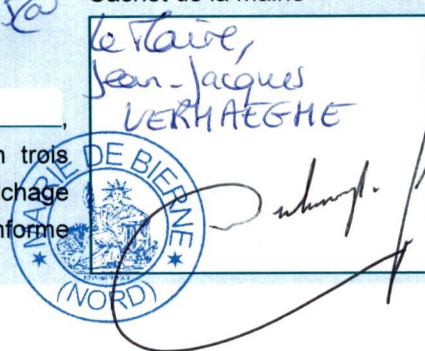 Cachet de la mairie
Le Maire,
Jean-Jacques
VERHAEGHE
,
n trois
chage
nforme
MAIRIE DE BIERNE
(NORD)